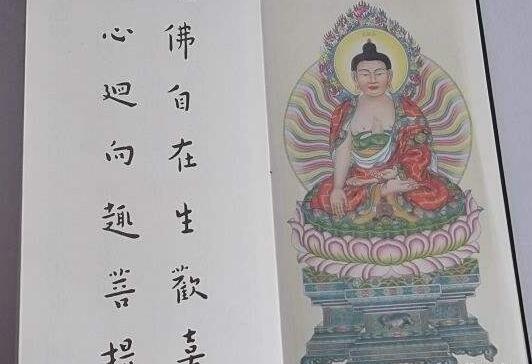 佛自在生歡喜
心迴向趣菩提